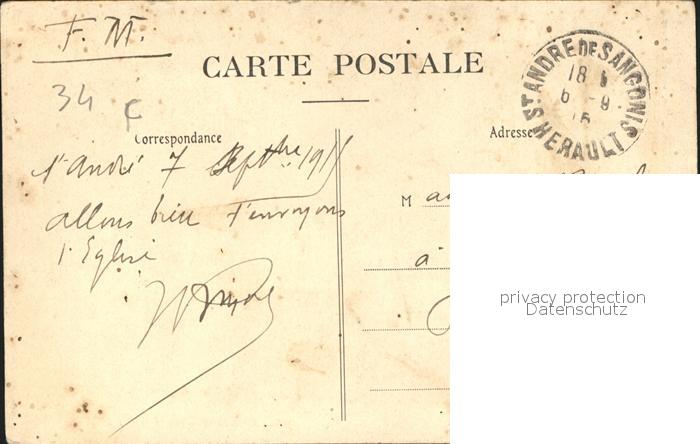 F. M.
CARTE POSTALE
34
Correspondance
St André 7 Septbre 1915
allons bien t'envoyons
l'Eglise
Adresse
M
à
ST ANDRE DE SANGONIS
18
6 - 9
15
HERAULT
privacy protection
Datenschutz